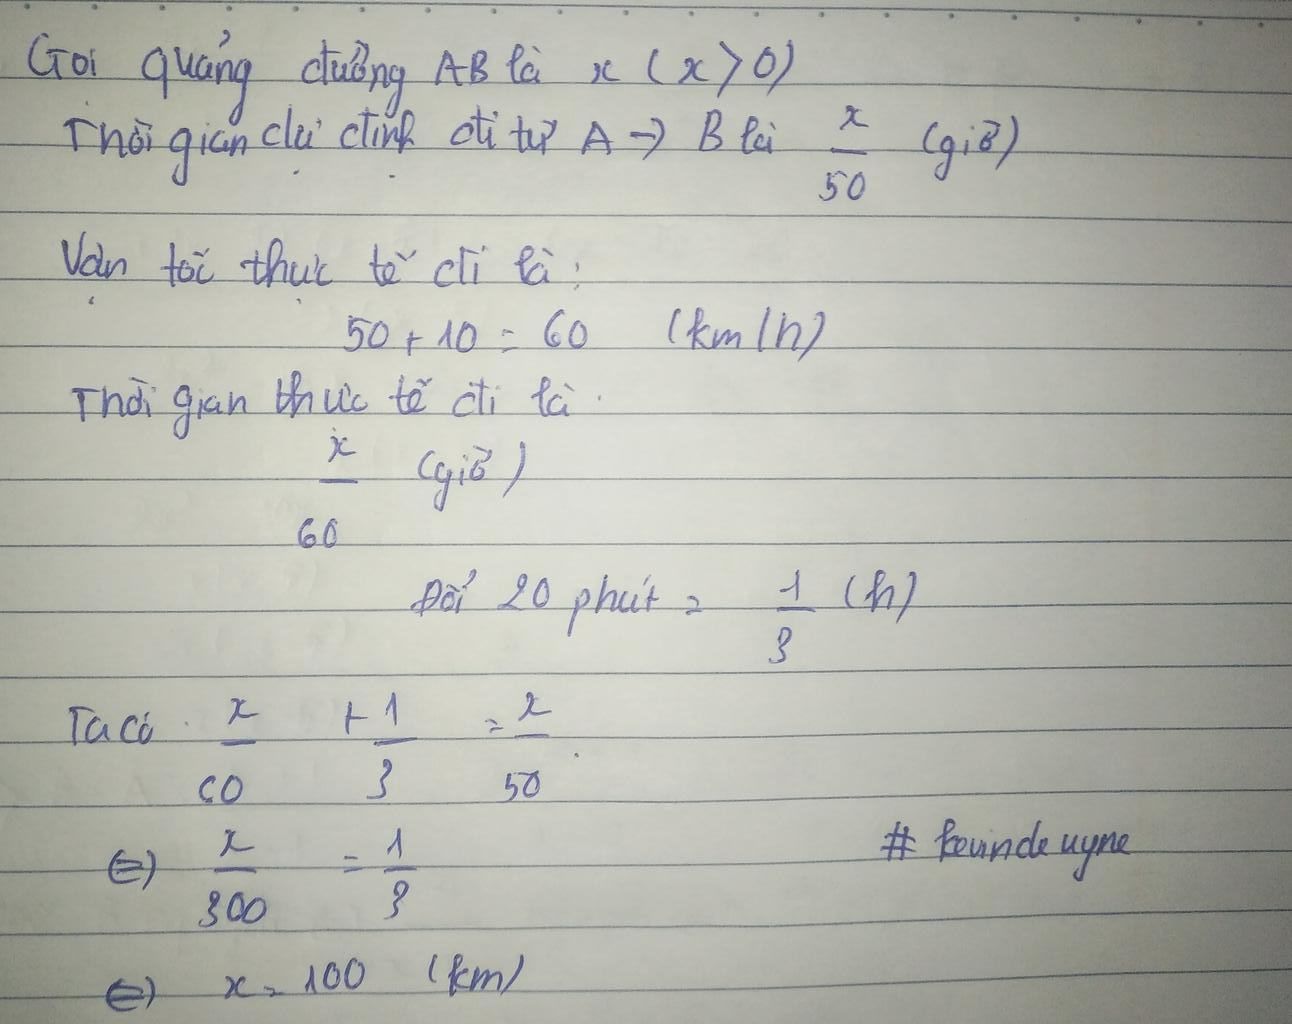 Gọi quảng đường AB là x (x>0)
Thời gian dự định đi từ A → B là x/50 (giờ)
Vận tốc thực tế đi là:
50 + 10 = 60 (km/h)
Thời gian thực tế đi là
x/60 (giờ)
Đổi 20 phút = 1/3 (h)
Ta có x/60 + 1/3 = x/50
⇔ x/300 = 1/3
⇔ x = 100 (km)